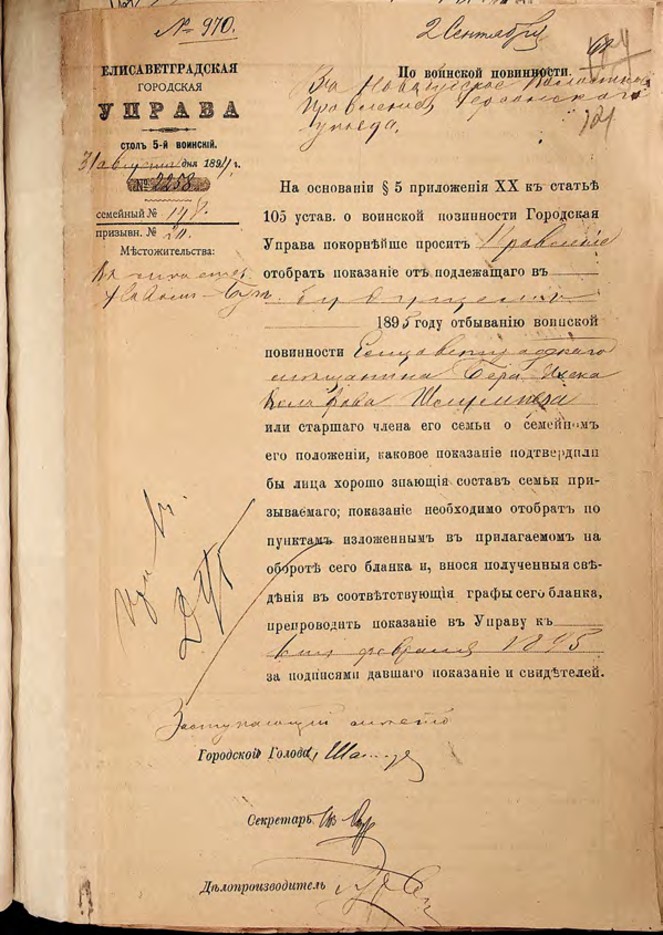 № 970.
2 Сентября
ЕЛИСАВЕТГРАДСКАЯ
ГОРОДСКАЯ
УПРАВА
столъ 5-й воинскій.
31 августа дня 1894 г.
№ 2258
семейный № 198.
призывн. № 20.
Мѣстожительства:
По воинской повинности.
Правленіе
уѣзда.
124
На основаніи § 5 приложенія XX къ статьѣ
105 устав. о воинской повинности Городская
Управа покорнѣйше проситъ Правленіе
отобрать показаніе отъ подлежащаго въ
будущемъ
1895 году отбыванію воинской
повинности Елисаветградскаго
мѣщанина Бера
или старшаго члена его семьи о семейномъ
его положеніи, каковое показаніе подтвердили
бы лица хорошо знающія составъ семьи при-
зываемаго; показаніе необходимо отобрать по
пунктамъ изложеннымъ въ прилагаемомъ на
оборотѣ сего бланка и, внося полученныя свѣ-
дѣнія въ соотвѣтствующія графы сего бланка,
препроводить показаніе въ Управу къ
февраля 1895
за подписями давшаго показаніе и свидѣтелей.
Заступающій мѣсто
Городской Голова,
Секретарь
Дѣлопроизводитель